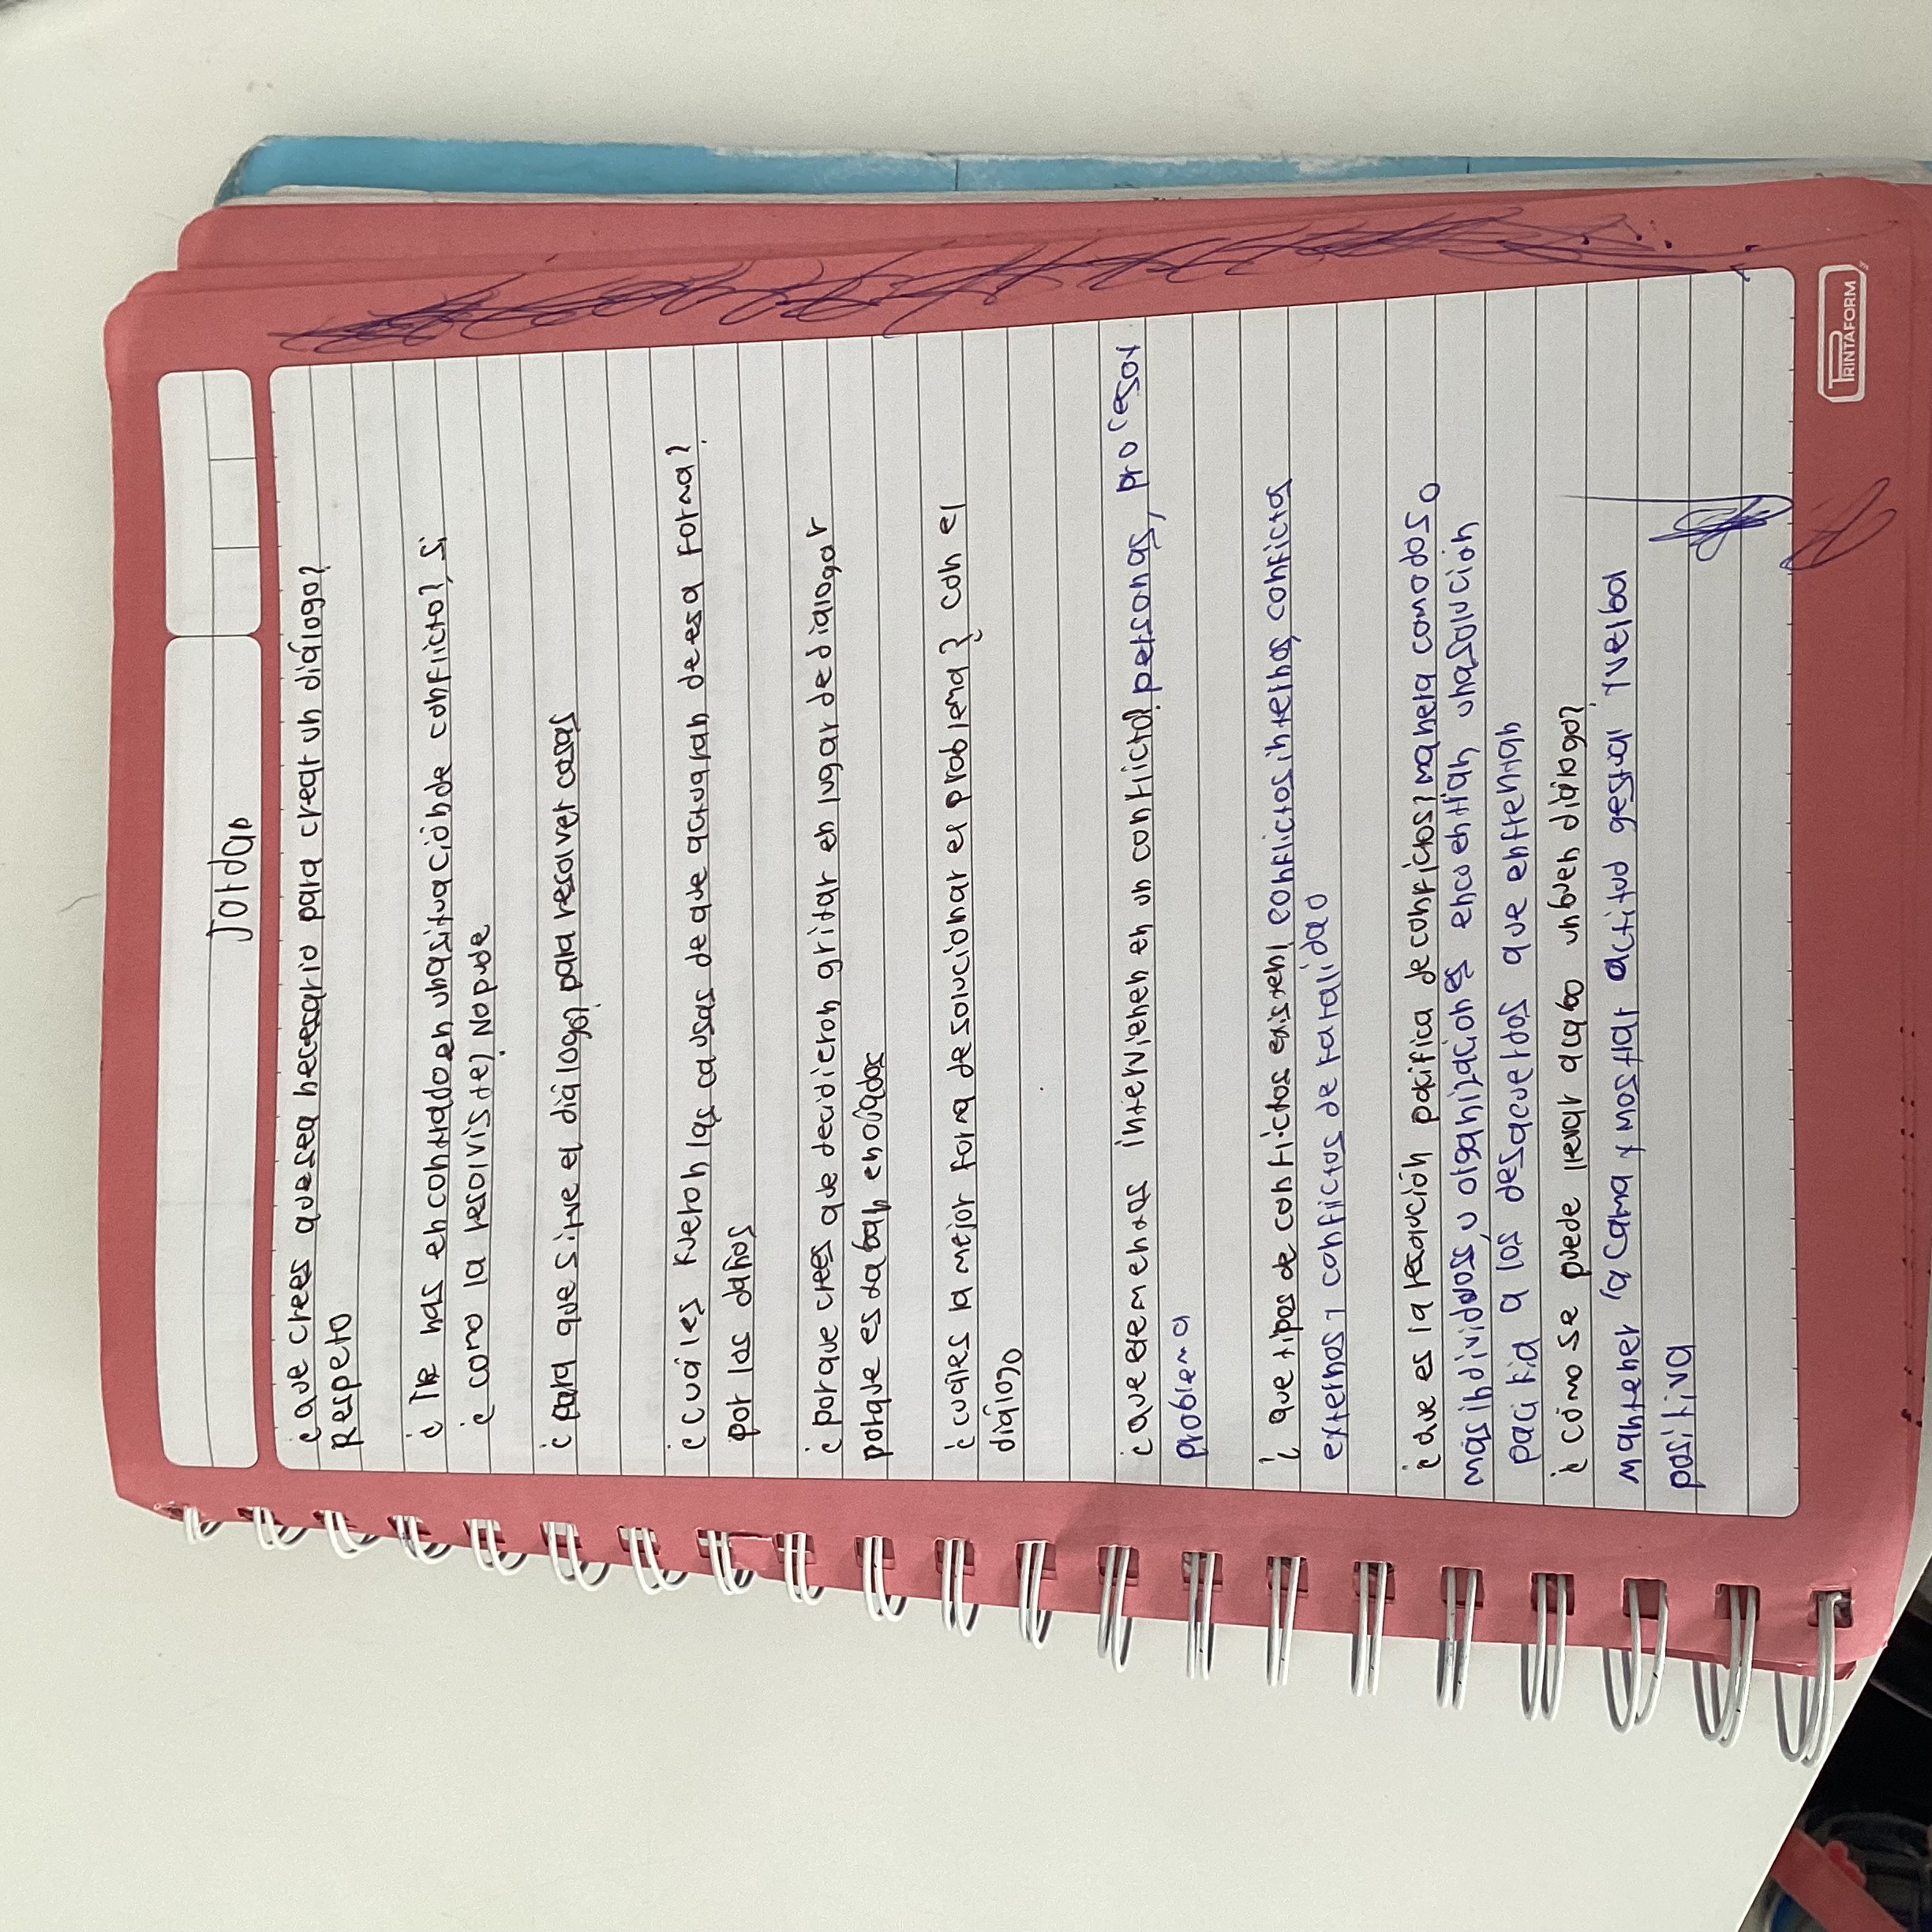 Jordan
¿que crees quesea necesario para crear un diálogo?
Respeto
¿Te has encontrado en unasituaciónde conflicto?, si
¿como la resolviste? No pude
¿para que sirve el diálogo? para resolver cosas
¿cuáles fueron las causas de que actuaran de esa forma?
por los daños
¿porque crees que decidieron gritar en lugar de dialogar
porque estaban enojados
¿cuáles la mejor forma de solucionar el problema? con el
diálogo
¿que elementos intervienen en un conflicto? personas, procesor
problema
¿que tipos de conflictos existen? conflictos internos, conflictos
externos y conflictos de
¿que es la resolución pacifica de conflictos? manera como dos o
más individuos, u organizaciones encuentran, unasolucion
a los desacuerdos que enfrentan
¿cómo se puede llevar acabo unbuen diálogo?
Mantener la cama y mostrar actitud gestual y verbal
positiva
PRINTAFORM